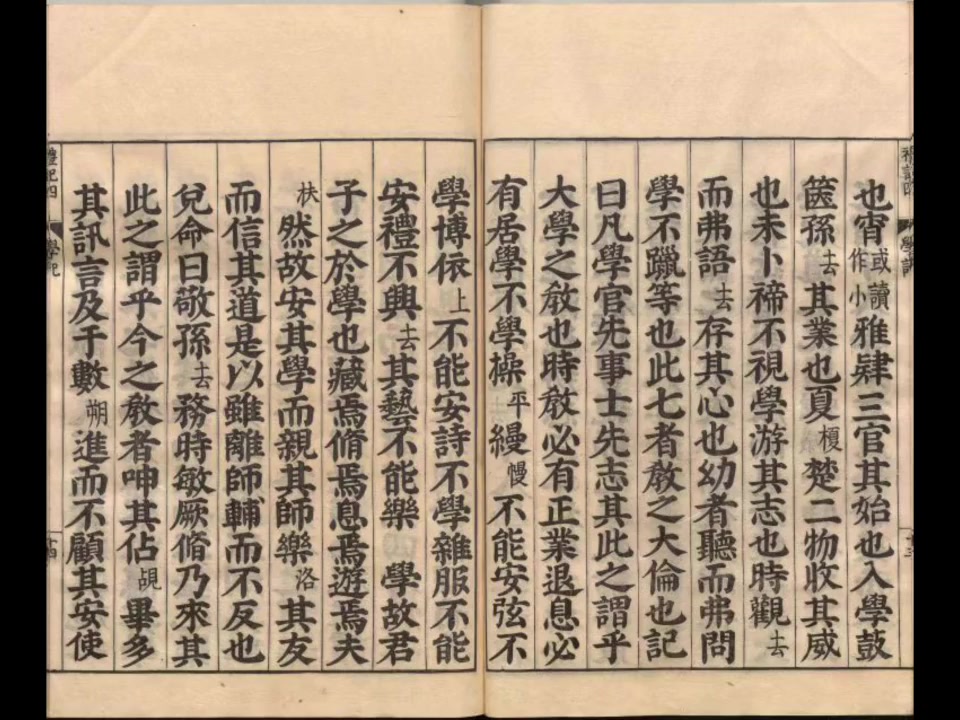 也宵或讀作小雅肄三官其始也入學鼓
篋孫去其業也夏榎楚二物收其威
也未卜禘不視學游其志也時觀去
而弗語去存其心也幼者聽而弗問
學不躐等也此七者敎之大倫也記
曰凡學官先事士先志其此之謂乎
大學之敎也時敎必有正業退息必
有居學不學操平縵慢不能安弦不
學博依上不能安詩不學雜服不能
安禮不興去其藝不能樂學故君
子之於學也藏焉脩焉息焉遊焉夫
扶然故安其學而親其師樂洛其友
而信其道是以雖離師輔而不反也
兌命曰敬孫去務時敏厥脩乃來其
此之謂乎今之敎者呻其佔覘畢多
其訊言及于數朔進而不顧其安使
禮記四
學記
十四